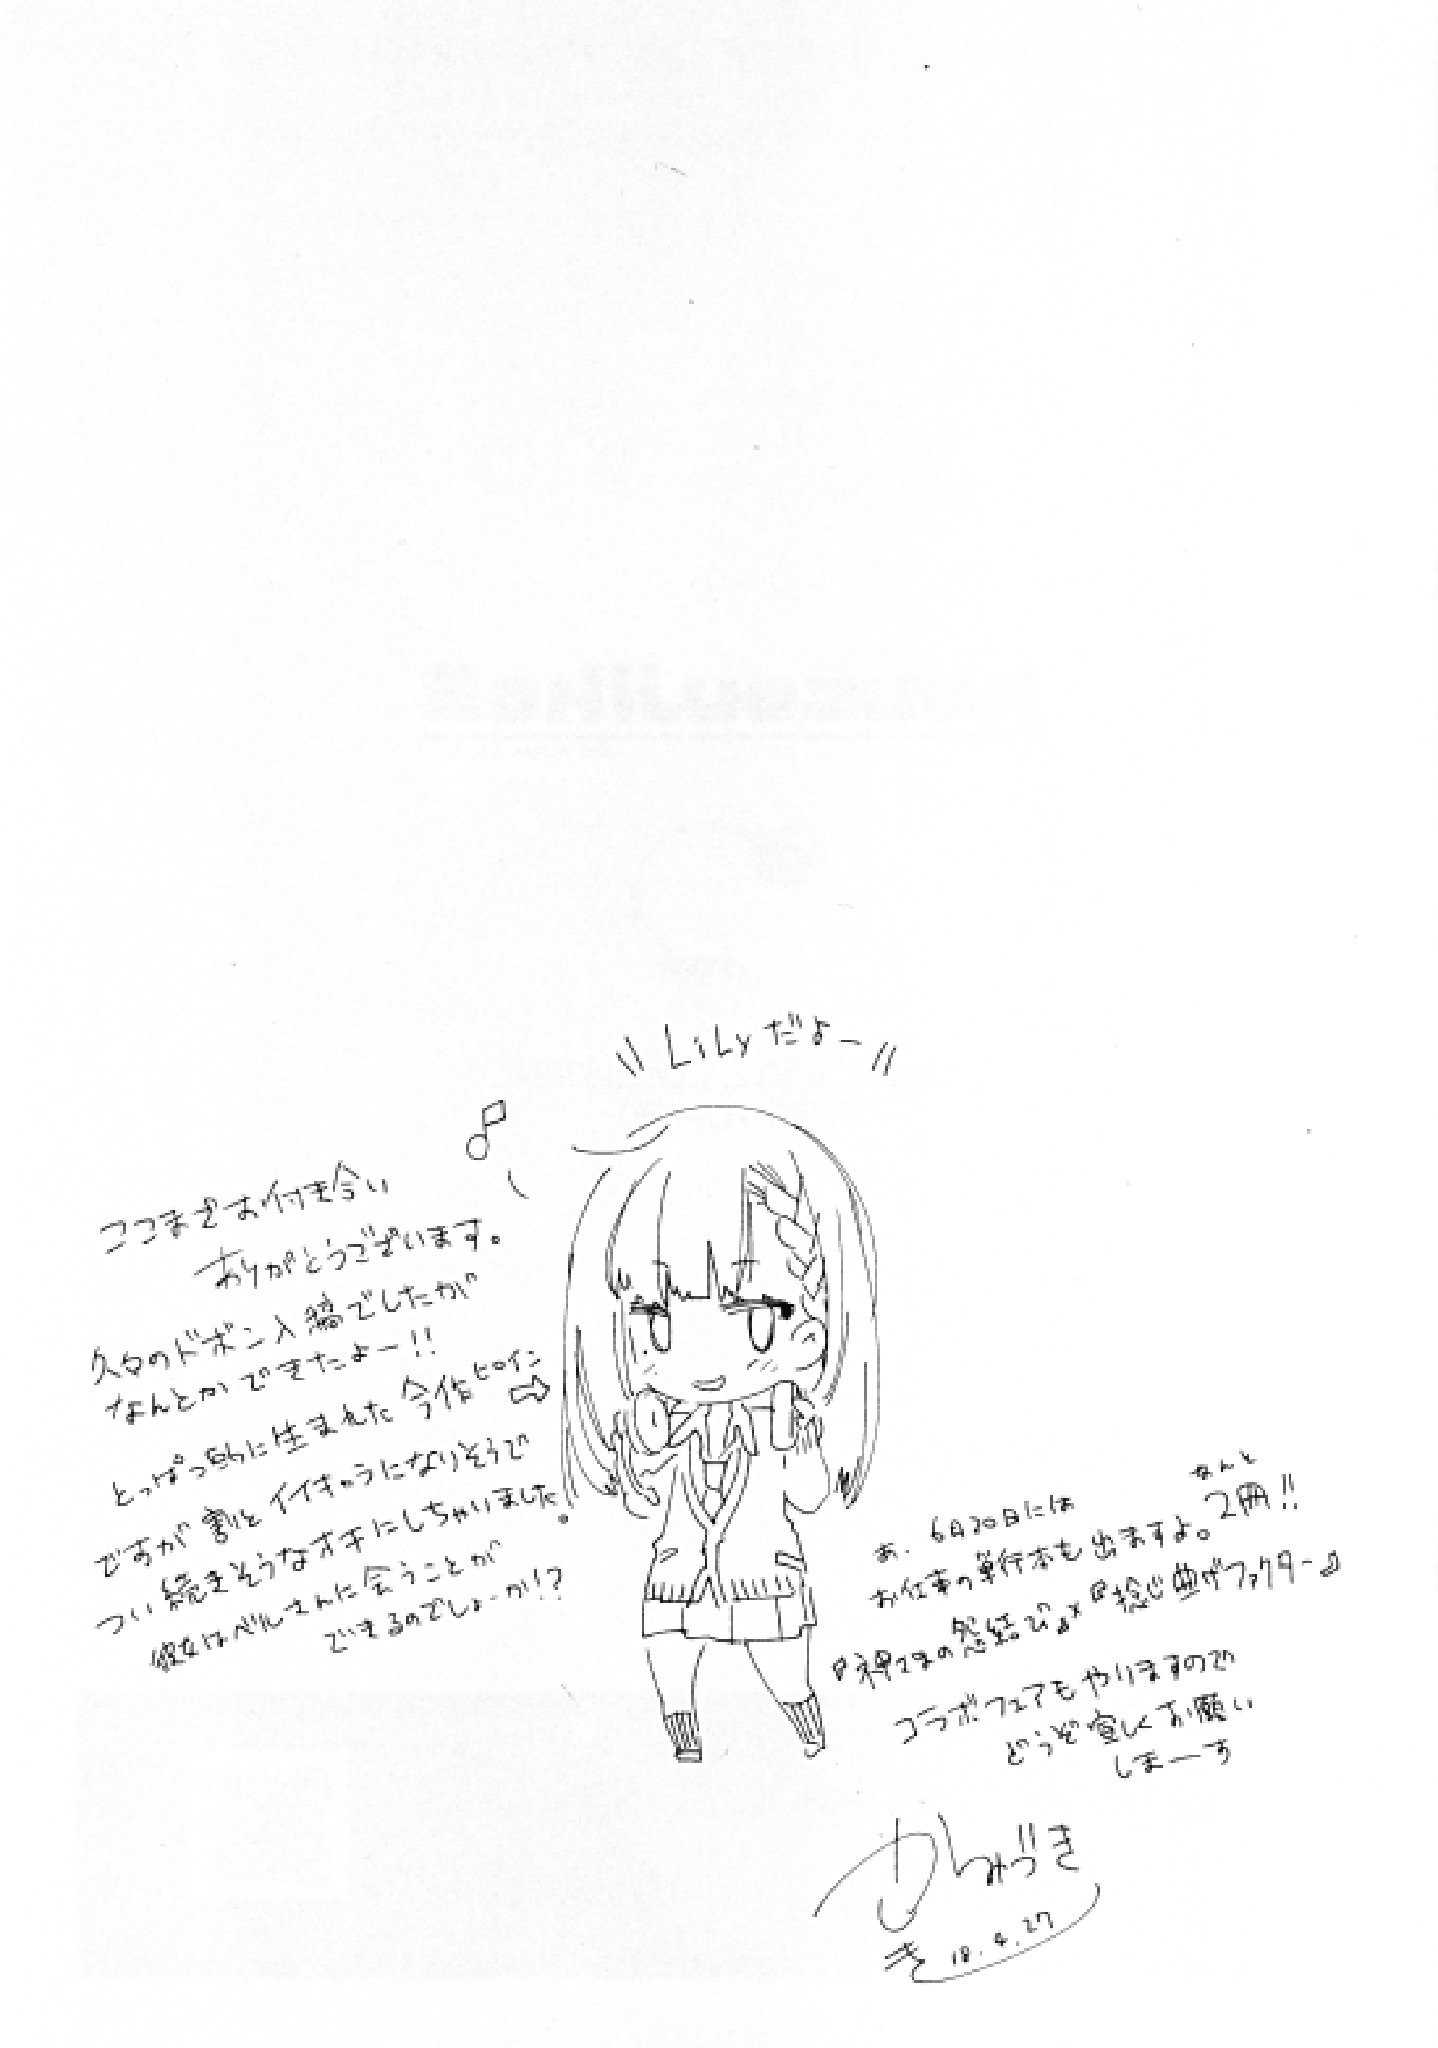 Lilyだよー
ここまでお付き合い
ありがとうございます。
久々のドボン入稿でしたが
なんとかできたよー!!
とっぱつ的に生まれた今作ヒロイン
ですが割とイイキャラになりそうで
つい続きそうなオチにしちゃいました。
彼女はベルさんに会うことが
できるのでしょーか!?
あ、6月20日には
お仕事の単行本も出ますよ。なんと2冊!!
『神さまの怨結び』×『捻じ曲げファクター』
コラボフェアもやりますので
どうぞ宜しくお願い
しまーす
かみづき
18.4.27